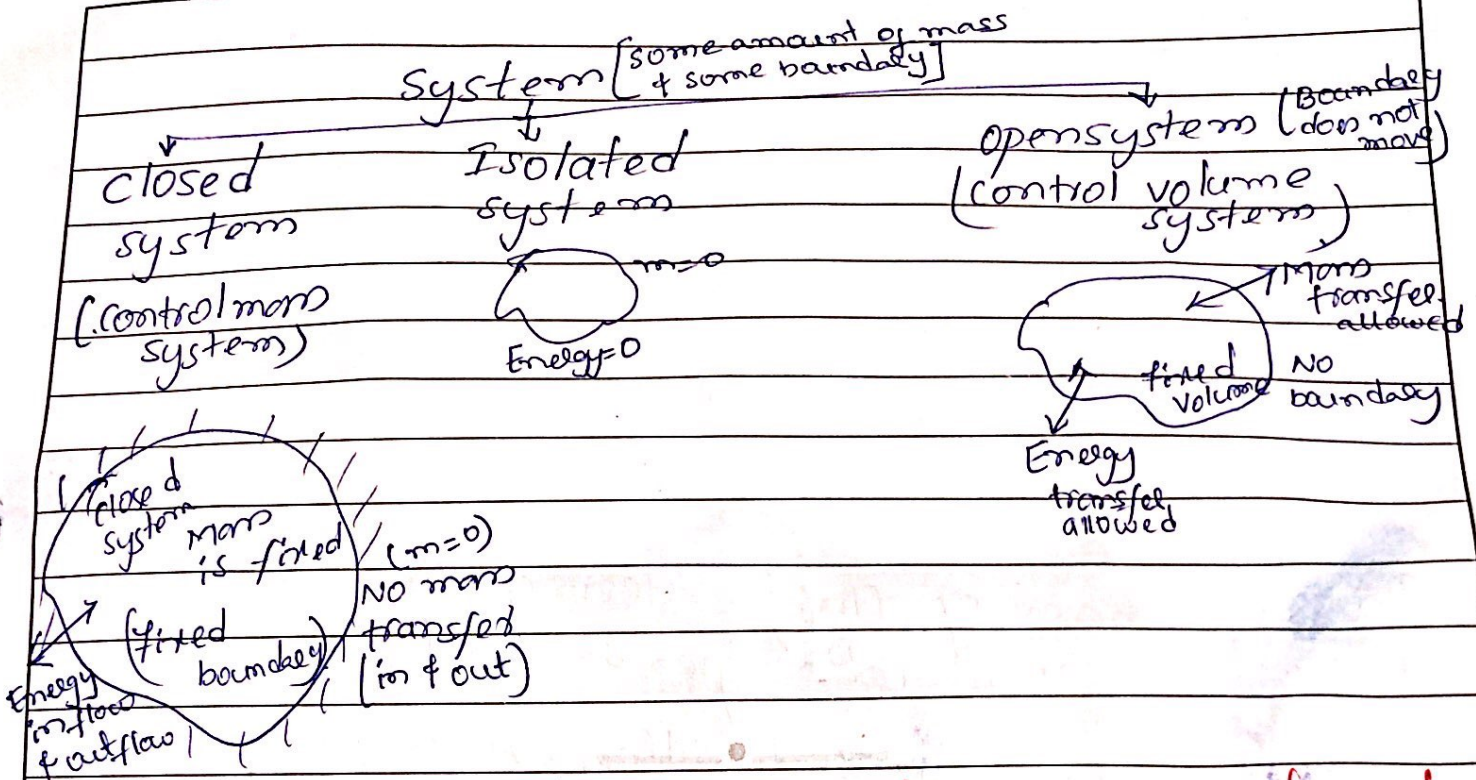 System [some amount of mass
& some boundary]
closed
system
(control mass
system)
Isolated
system
m=0
Energy=0
open system (Boundary
does not
move)
(control volume
system)
Mass
transfer
allowed
fixed
volume
NO
boundary
Energy
transfer
allowed
closed
system
Mass
is fixed
(fixed
boundary)
(m=0)
NO mass
transfer
(in & out)
Energy
inflow
& outflow